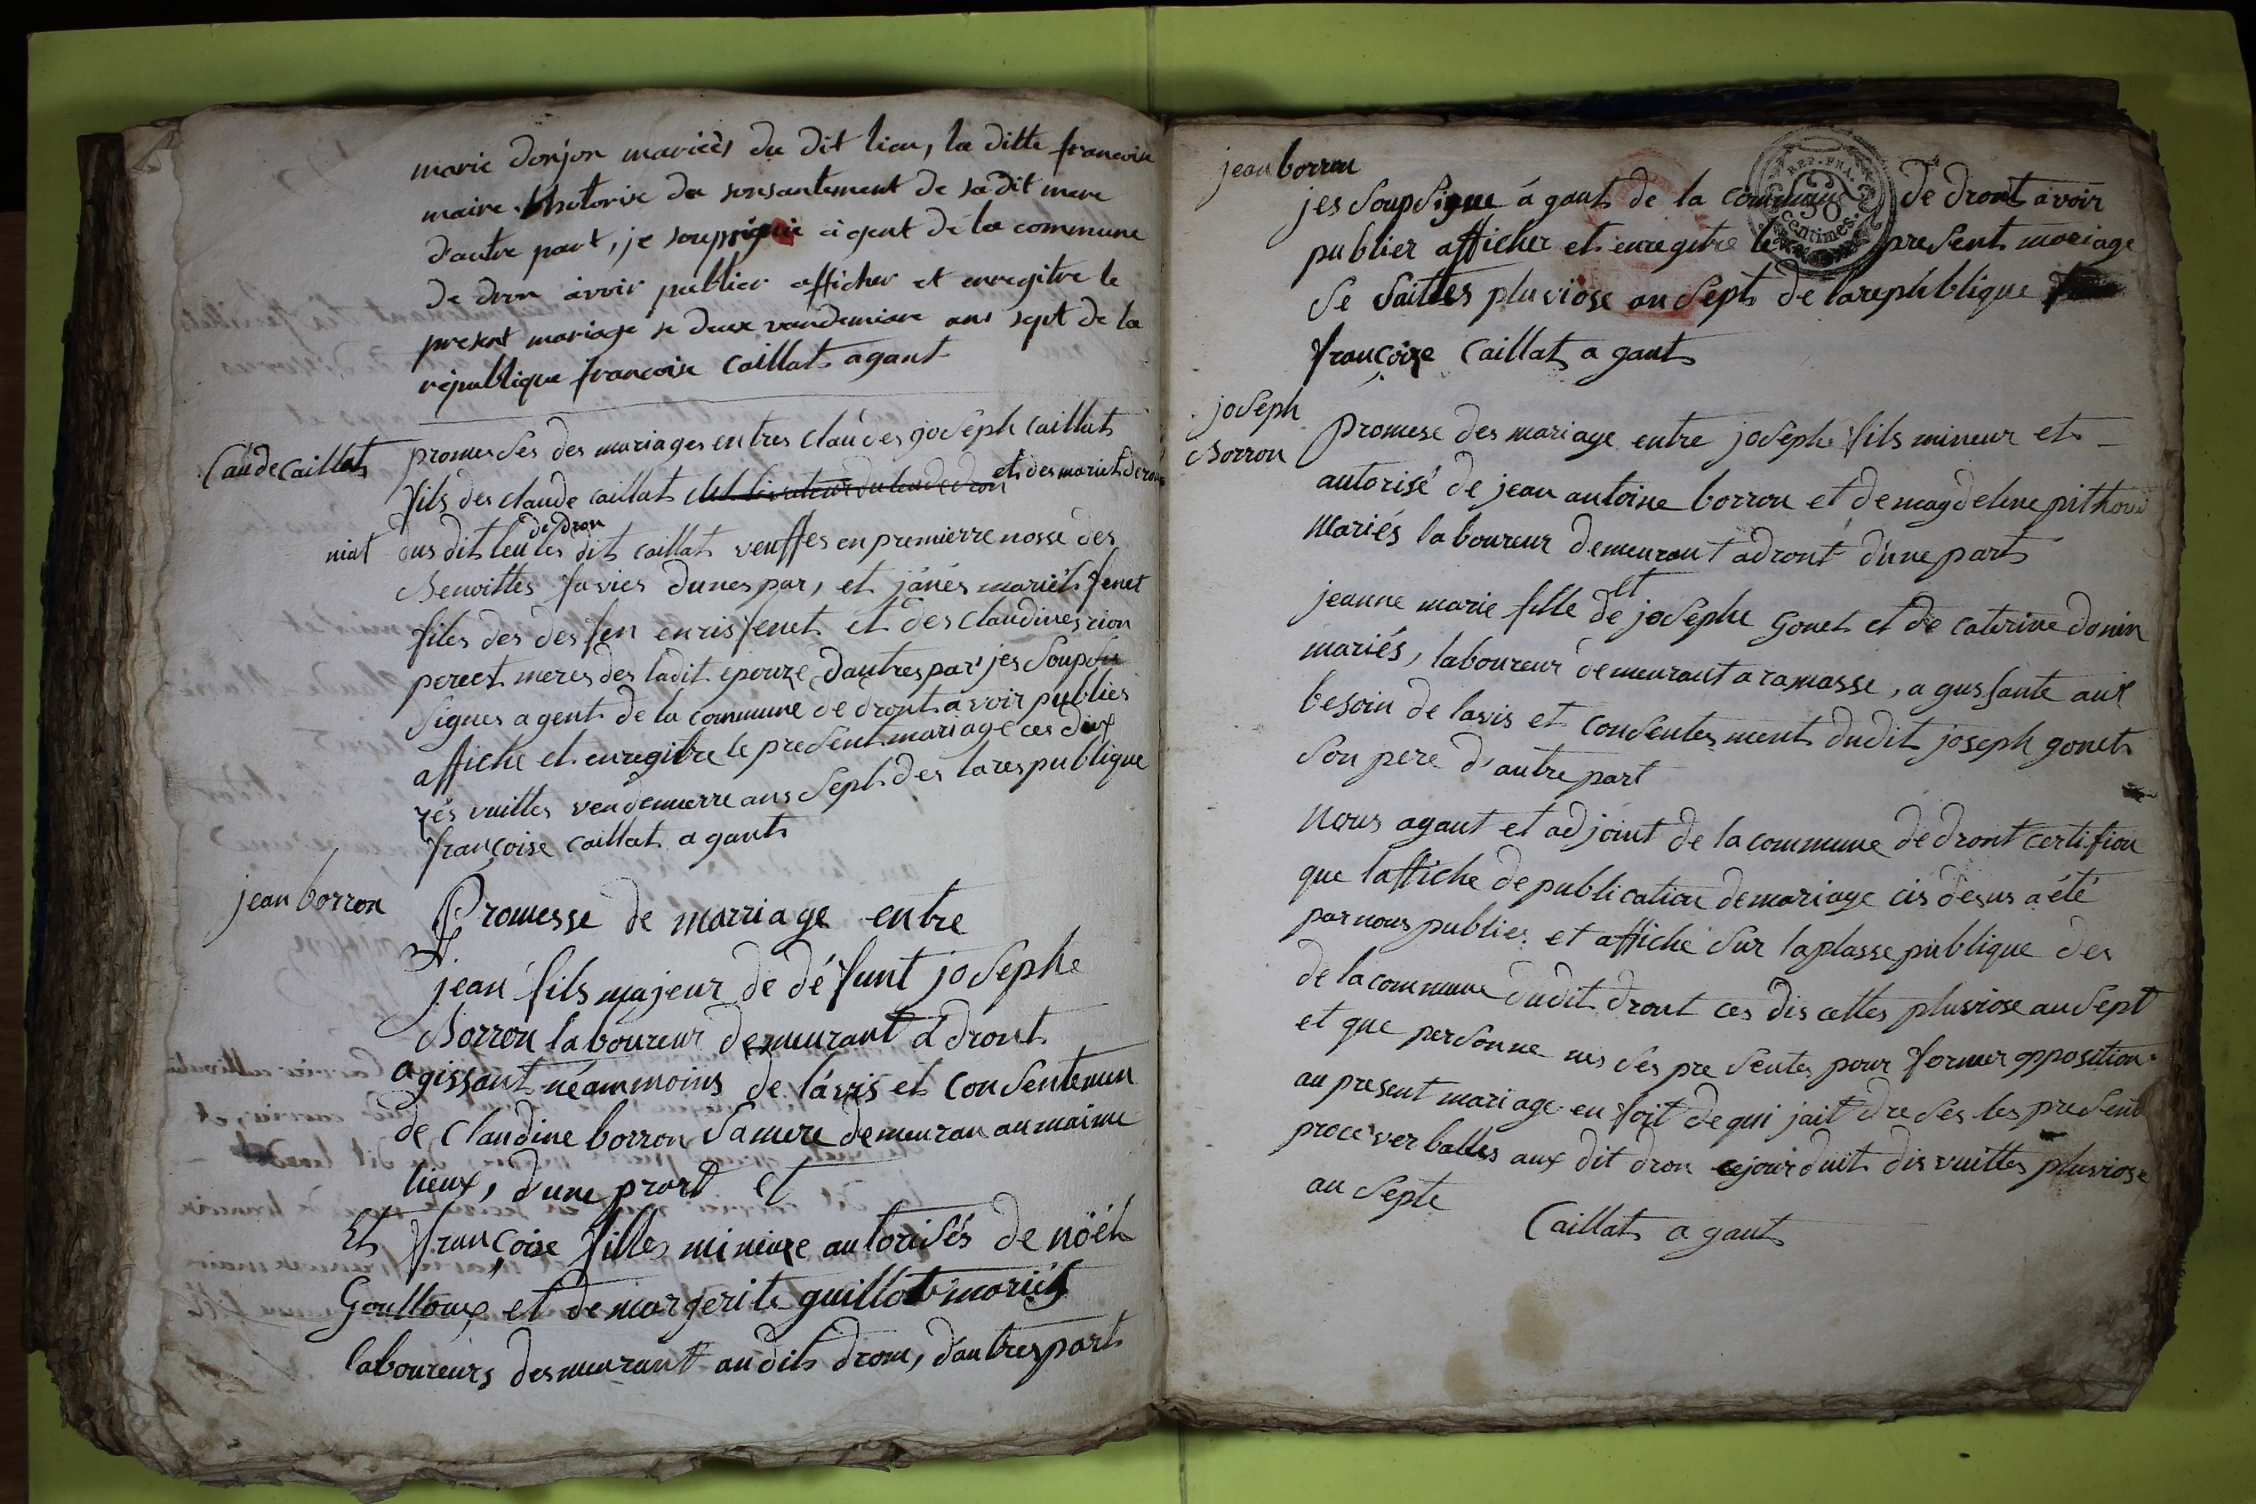 marie donjon mariéès du dit lieu, la ditte francoise
maire du sonsantement de sadit mere
d'autre part, je soupsignie agent de la commune
de dron avoir publier afficher et enregitre le
present mariage se deux vandemiare ans sept de la
république francoise Caillat agant
Caude Caillat
promesses des mariages entres claudes joseph caillat
fils des claude caillat et des mariet
niat dus dit leu les dit caillat veuffes en premierre nosse des
de dron
Benoittes favies dunes par, et janés mariet fenet
files des des feu enris fenet et des Claudines rion
pere et meres des ladit epouze dautres par jes soup
signes agent de la commune de dront avoir publies
affiche et enregitre le present mariage ces dix
zes vuittes vendemierre ans Sept des la respublique
françoise caillat a gant
jean borron
Promesse de marriage entre
jean fils majeur de défunt josephe
Borron laboureur demeurant a dront
agissant néammoins de l'avis et consentemen
de Claudine borron sa mere demeuran au maime
lieux, d'une prart et
Et françoise filles minieure autorisés de nöél
Goulloux et de margerite guillot mariés
laboureurs desmeurant audit drom, dautres part
jean borron
jes soupsigne agant de la commune de dront avoir
publier afficher et enregitre le present mariage
se saittes pluviose an sept de la republique
françoize Caillat a gant
REP. FRA.
50 centimes
joseph
Borron
Promese des mariage entre josephe fils mineur et
autorisé de jean antoine borron et de magdelene pithoud
mariés laboureur demeurant a dront d'une part
et
jeanne marie fille de josephe gonet et de caterine donin
mariés, laboureur demeurant a ramasse, agussante aux
besoin de lavis et consentesment dudit joseph gonet
son pere d'autre part
nous agant et adjoint de la commune de dront certifion
que laffiche de publication de mariage cis desus a été
par nous publies et affiche sur la plasse publique des
de la commune dudit dront ces dis cettes plusviose an sept
et que personne nes ses presentes pour former opposition
au present mariage en foit de qui jait dreses les present
proce verballes aux dit dron cejourduit dis vuittes plusviose
an septe
Caillat a gant